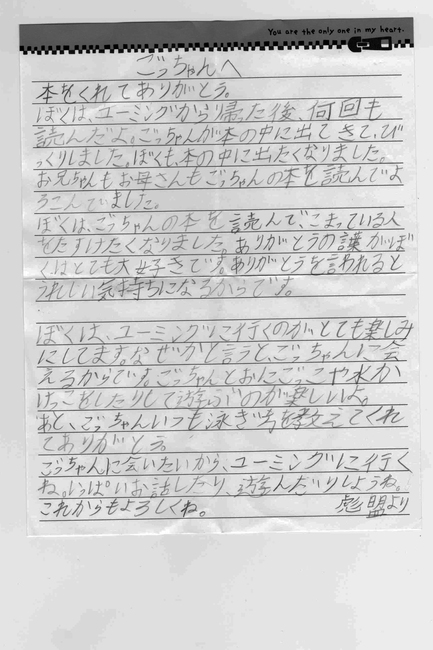 You are the only one in my heart.
ごっちゃんへ
本をくれてありがとう。
ぼくは、ユーミングから帰った後、何回も
読んだよ。ごっちゃんが本の中に出てきて、び
っくりしました。ぼくも、本の中に出たくなりました。
お兄ちゃんもお母さんもごっちゃんの本を読んでよ
ろこんでいました。
ぼくは、ごっちゃんの本を読んで、こまっている人
をたすけたくなりました。ありがとうの言葉がぼ
くはとても大好きです。ありがとうを言われると
うれしい気持ちになるからです。
ぼくは、ユーミングに行くのがとても楽しみ
にしてます。なぜかと言うと、ごっちゃんに会
えるからです。ごっちゃんとおにごっこや水か
けっこをしたりして遊ぶのが楽しいよ。
あと、ごっちゃんいつも泳ぎ方を教えてくれ
てありがとう。
ごっちゃんに会いたいから、ユーミングに行く
ね。いっぱいお話したり、遊んだりしようね。
これからもよろしくね。 彪盟より